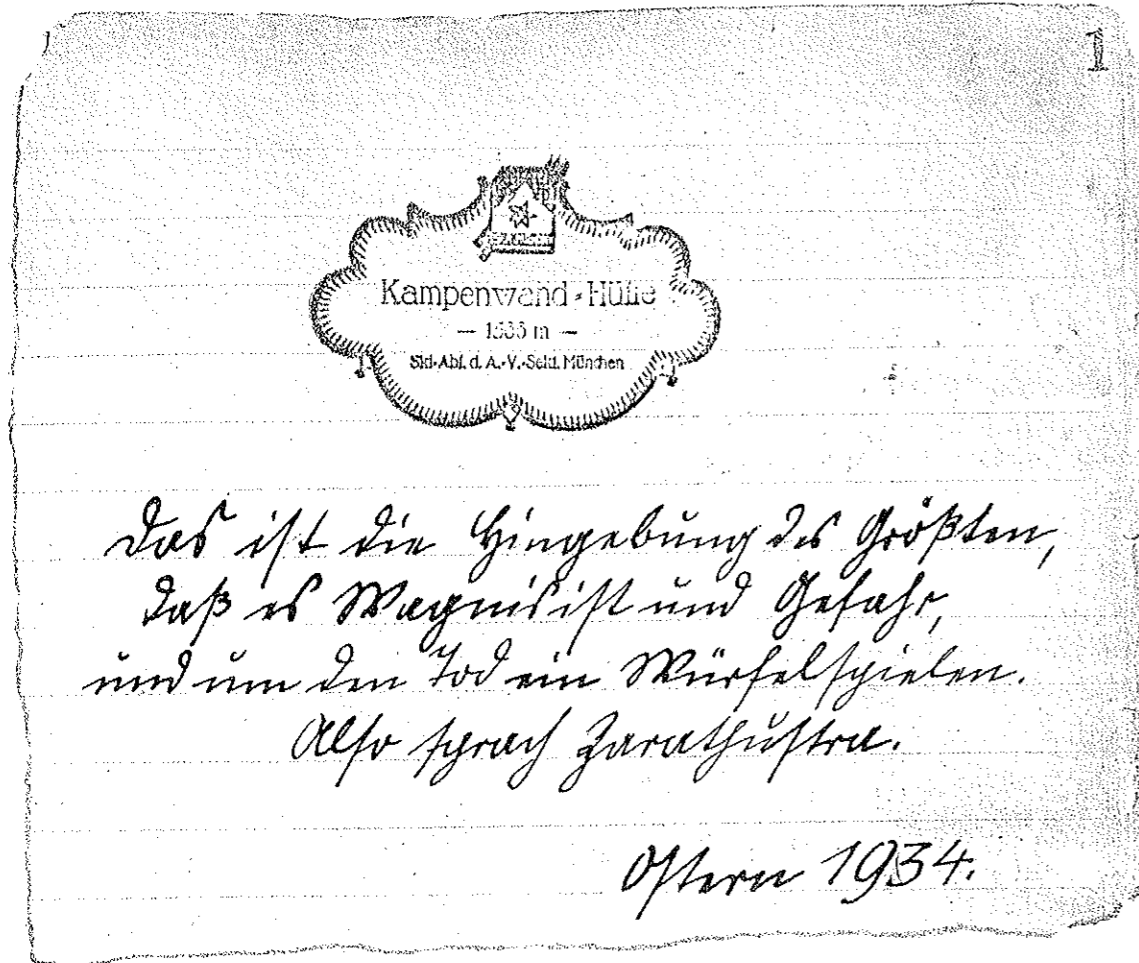 1
Kampenwand-Hütte
— 1535 m —
Ski-Abt. d. A.-V.-Sekt. München
Das ist die Hingebung des Größten,
daß es Wagnis ist und Gefahr,
und um den Tod ein Würfelspielen.
Also sprach Zarathustra.
Ostern 1934.